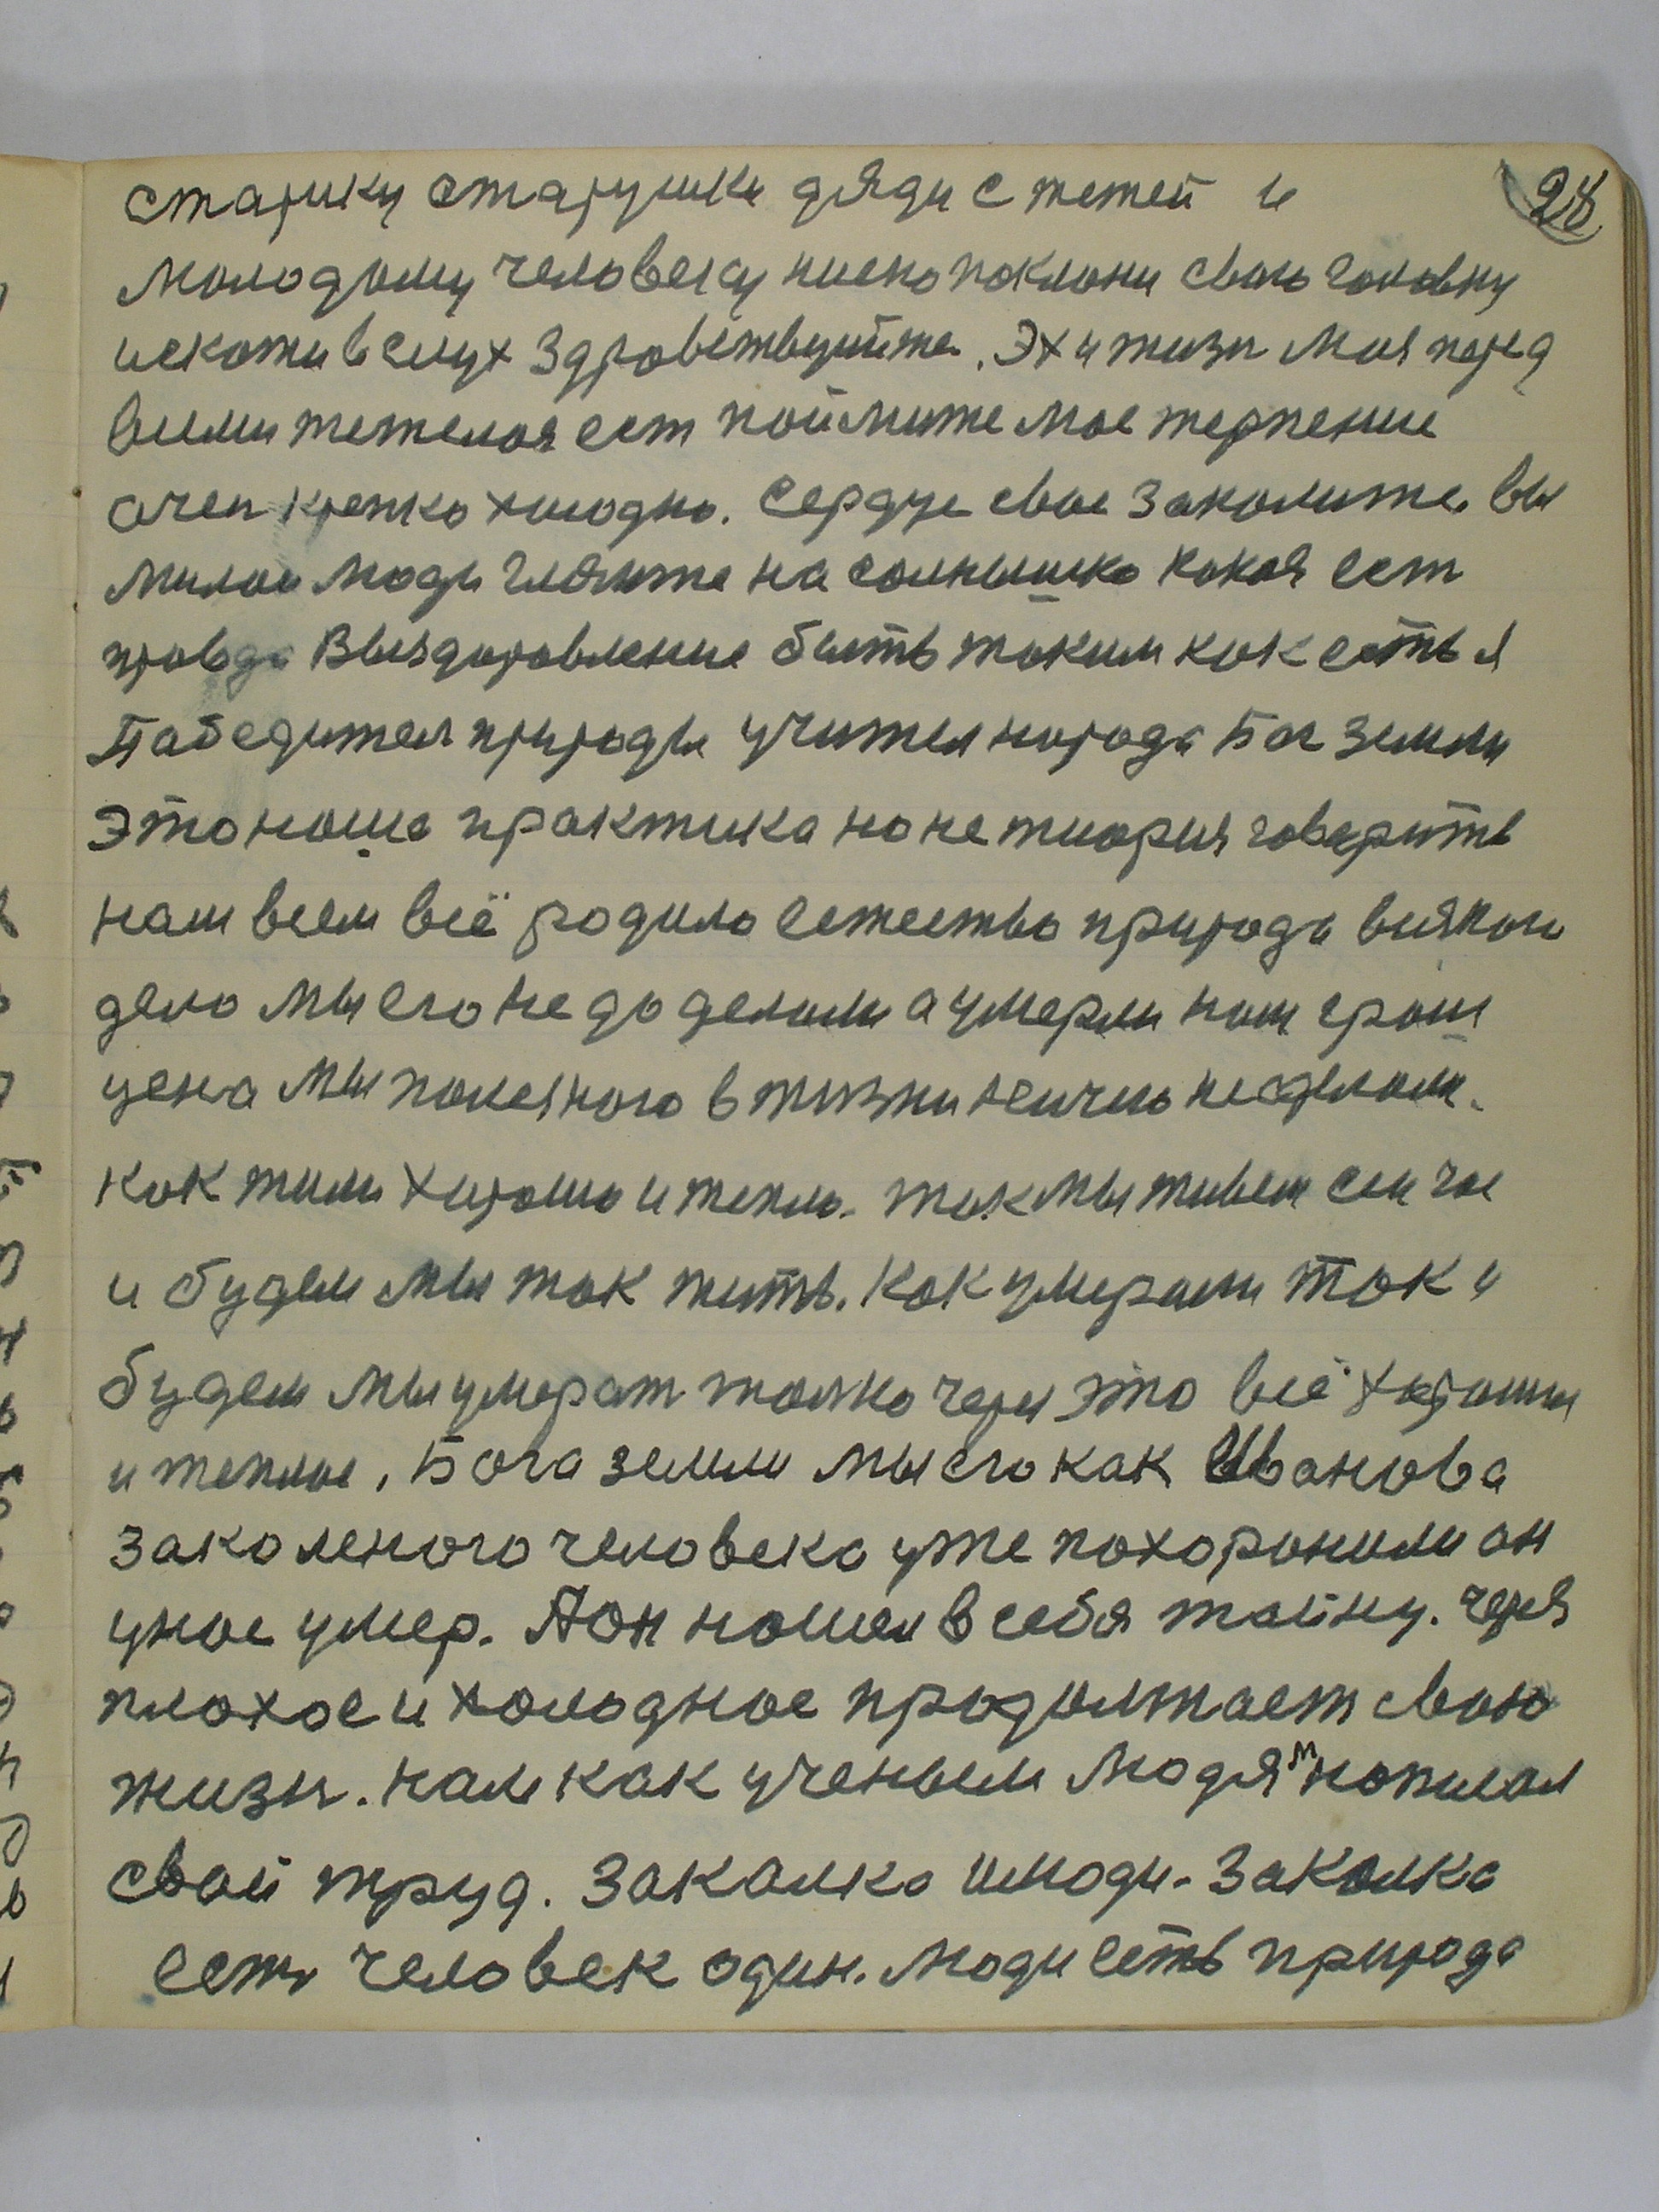 28
старику старушки дяди с тетей и
молодому человеку ниско поклони свою головку
искажи вслух здровствуйте. Эх и жизн моя перед
вими тежелоя ест поймите мое терпение
очен крепко холодно. Сердце свое заколите. вы
милои люди гляните на солнышко какоя ест
правда Выздоровление быть таким как есть я
Пабедител природы учител народа Бог земли
это наша практика но не тиория говерить
нам всем всё родило естество природа всякого
дело мы его не до делоли а умерли нам грош
цена мы полезного в жизни ничего несделоли.
Как жили харошо и тепло. так мы живем сичас
и будем мы так жить. Как умерали так и
будем мы умерат толко через это всё харошы
и теплое. Бога земли мы его как Иванова
заколеного человека уже похоронили он
унос умер. А он нашел в себя тайну. через
плохое и холодное продолжает свою
жизн. нам как ученым людям наживал
свой труд. Закалка илюди. Закалка
есть человек один. люди есть природа